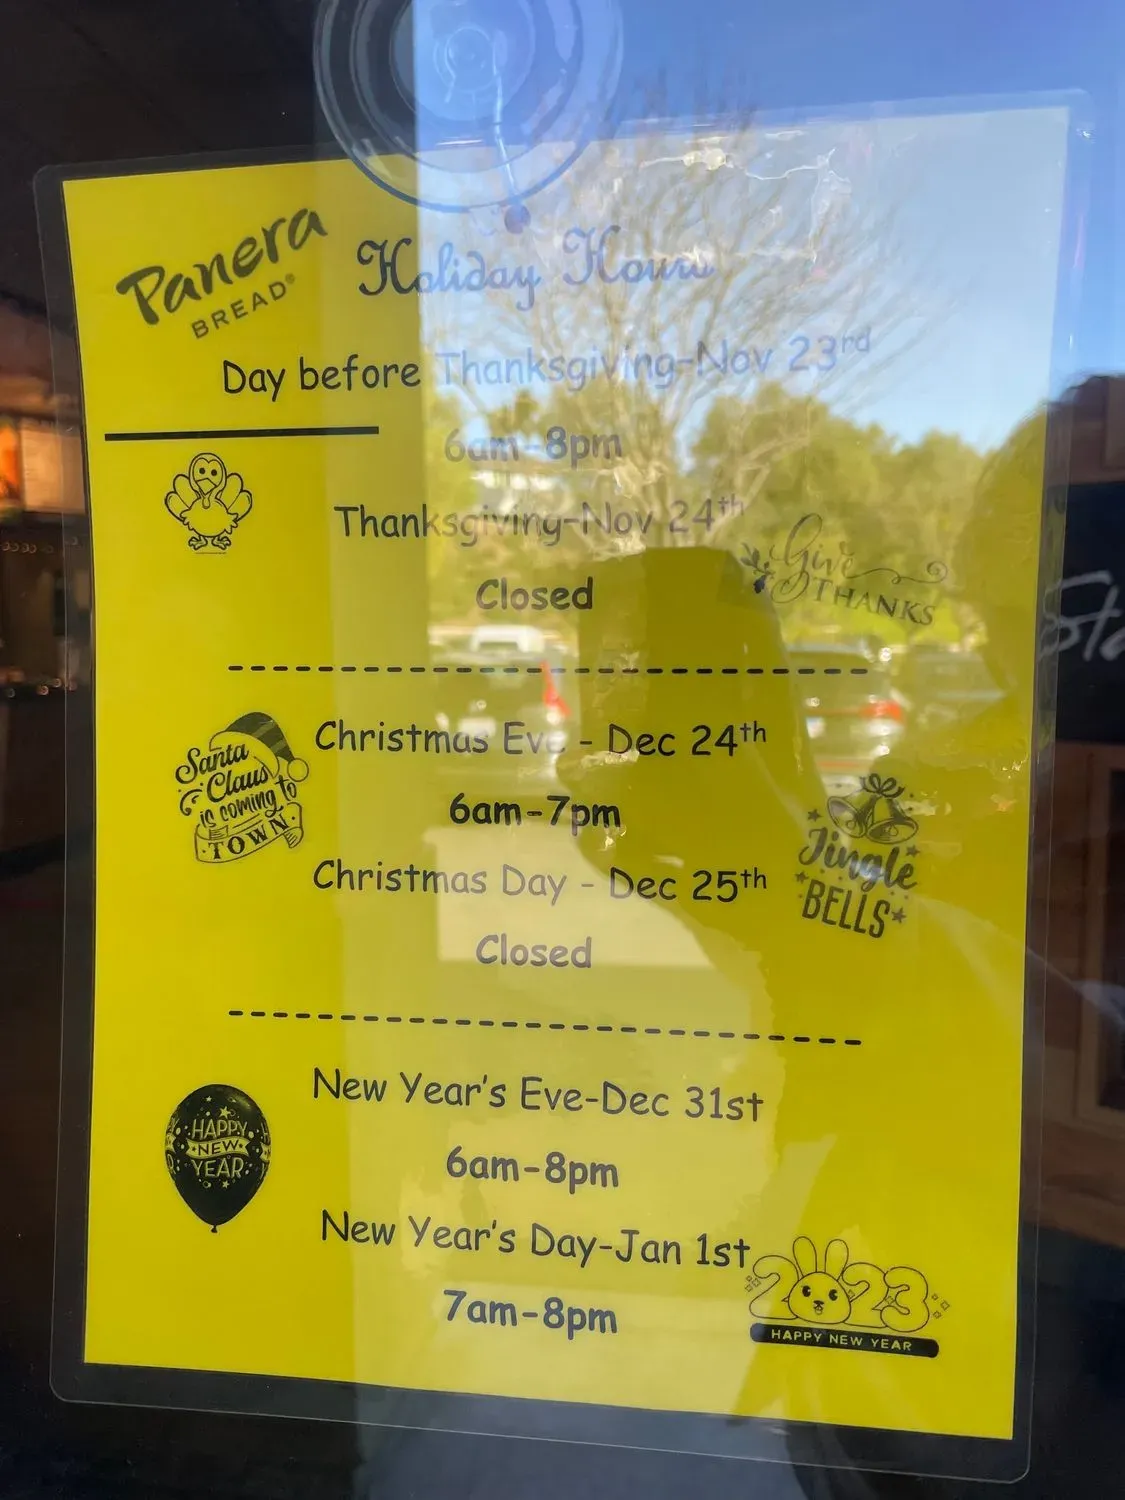 Panera
BREAD®
Holiday Hours
Day before Thanksgiving-Nov 23rd
6am-8pm
Thanksgiving-Nov 24th
Closed
Give
THANKS
Santa
Claus
is coming to
TOWN
Christmas Eve - Dec 24th
6am-7pm
Christmas Day - Dec 25th
Closed
Jingle
BELLS
New Year's Eve-Dec 31st
6am-8pm
HAPPY
NEW
YEAR
New Year's Day-Jan 1st
7am-8pm
2023
HAPPY NEW YEAR